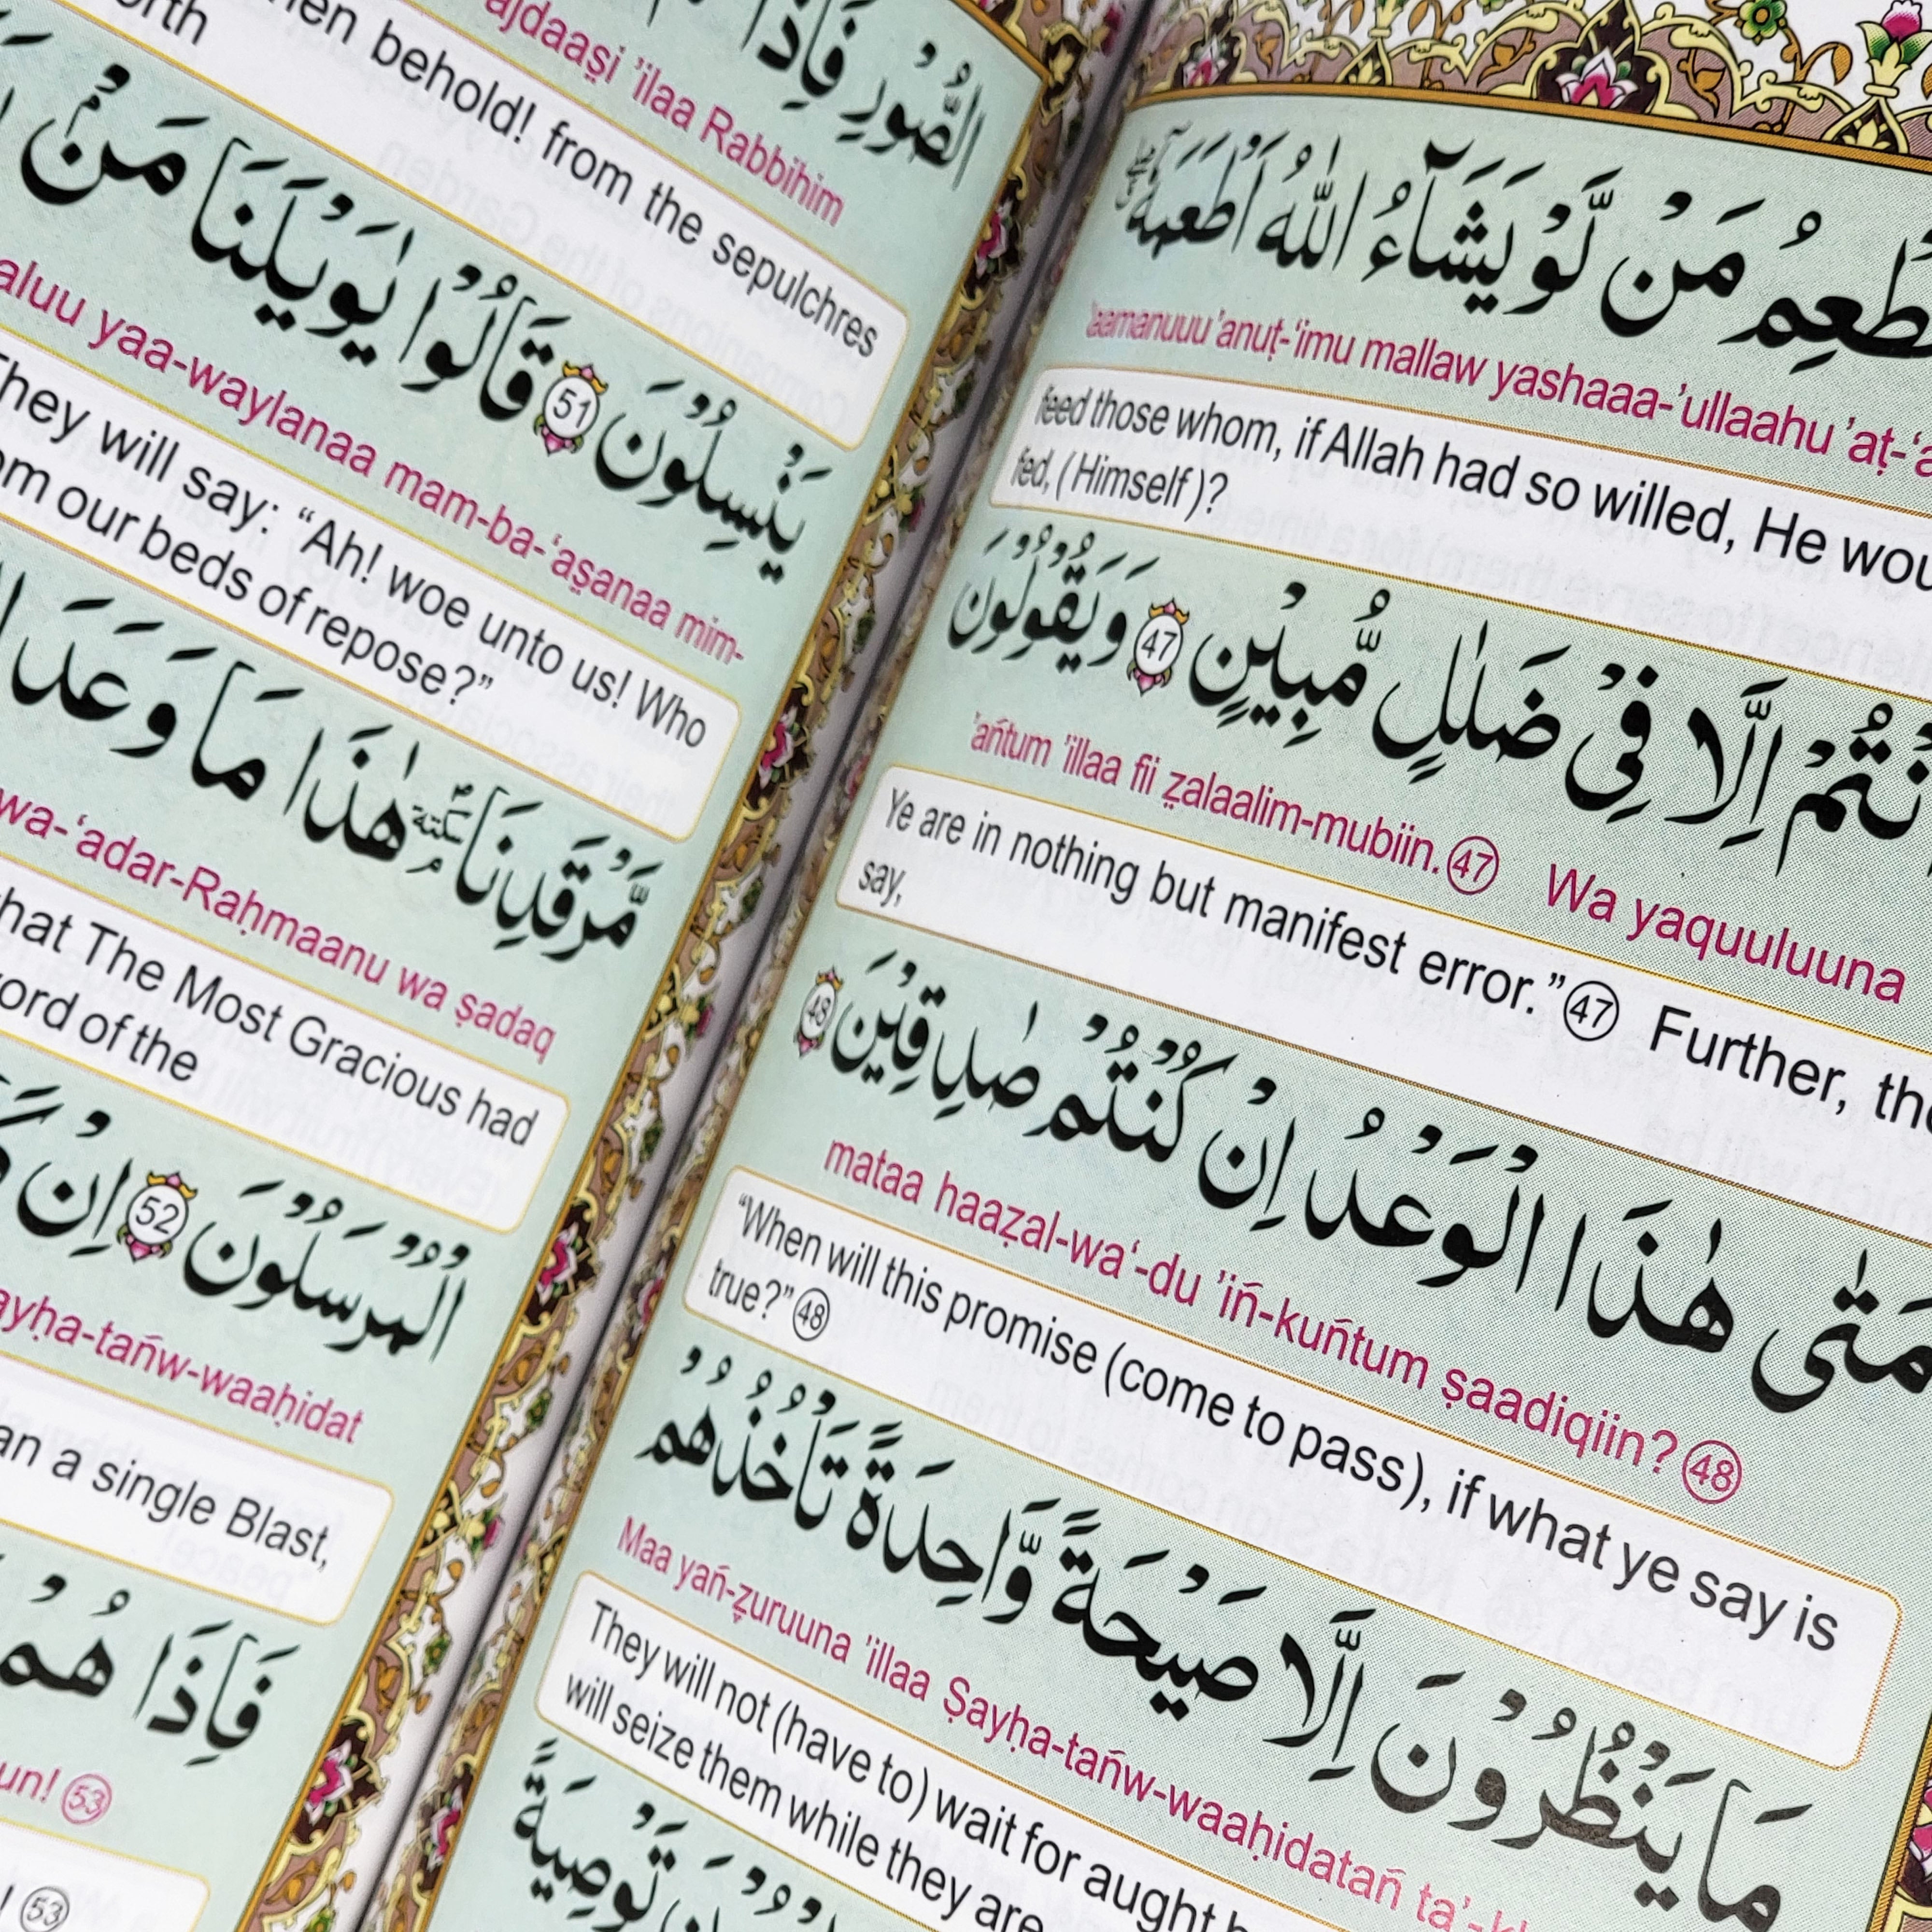 طْعِمُ مَنْ لَّوْ يَشَآءُ اللّٰهُ اَطْعَمَهٗۤ
'aamanuuu 'anuṭ-'imu mallaw yashaaa-'ullaahu 'aṭ-'a
feed those whom, if Allah had so willed, He wou
fed, (Himself)?
نْتُمْ اِلَّا فِیْ ضَلٰلٍ مُّبِيْنٍ 47 وَيَقُوْلُوْنَ
'ańtum 'illaa fii ẓalaalim-mubiin. 47 Wa yaquuluuna
Ye are in nothing but manifest error.” 47 Further, the
say,
مَتٰى هٰذَا الْوَعْدُ اِنْ كُنْتُمْ صٰدِقِيْنَ 48
mataa haaẓal-wa‘-du 'iń-kuńtum ṣaadiqiin? 48
“When will this promise (come to pass), if what ye say is
true?” 48
مَا يَنْظُرُوْنَ اِلَّا صَيْحَةً وَّاحِدَةً تَاْخُذُهُمْ
Maa yań-ẓuruuna 'illaa Ṣayḥa-tańw-waaḥidatań ta'-k
They will not (have to) wait for aught b
will seize them while they are
تَوْصِيَةً
الصُّوْرِ فَاِذَا
ajdaaṣi 'ilaa Rabbihim
hen behold! from the sepulchres
orth
يَنْسِلُوْنَ 51 قَالُوْا يٰوَيْلَنَا مَنْۢ
aluu yaa-waylanaa mam-ba-‘aṣanaa mim-
They will say: “Ah! woe unto us! Who
om our beds of repose?”
مَّرْقَدِنَا سكتة هٰذَا مَا وَعَدَ ا
wa-‘adar-Raḥmaanu wa ṣadaq
hat The Most Gracious had
ord of the
الْمُرْسَلُوْنَ 52 اِنْ كَ
ayḥa-tańw-waaḥidat
an a single Blast,
فَاِذَا هُمْ
un! 53
! 53